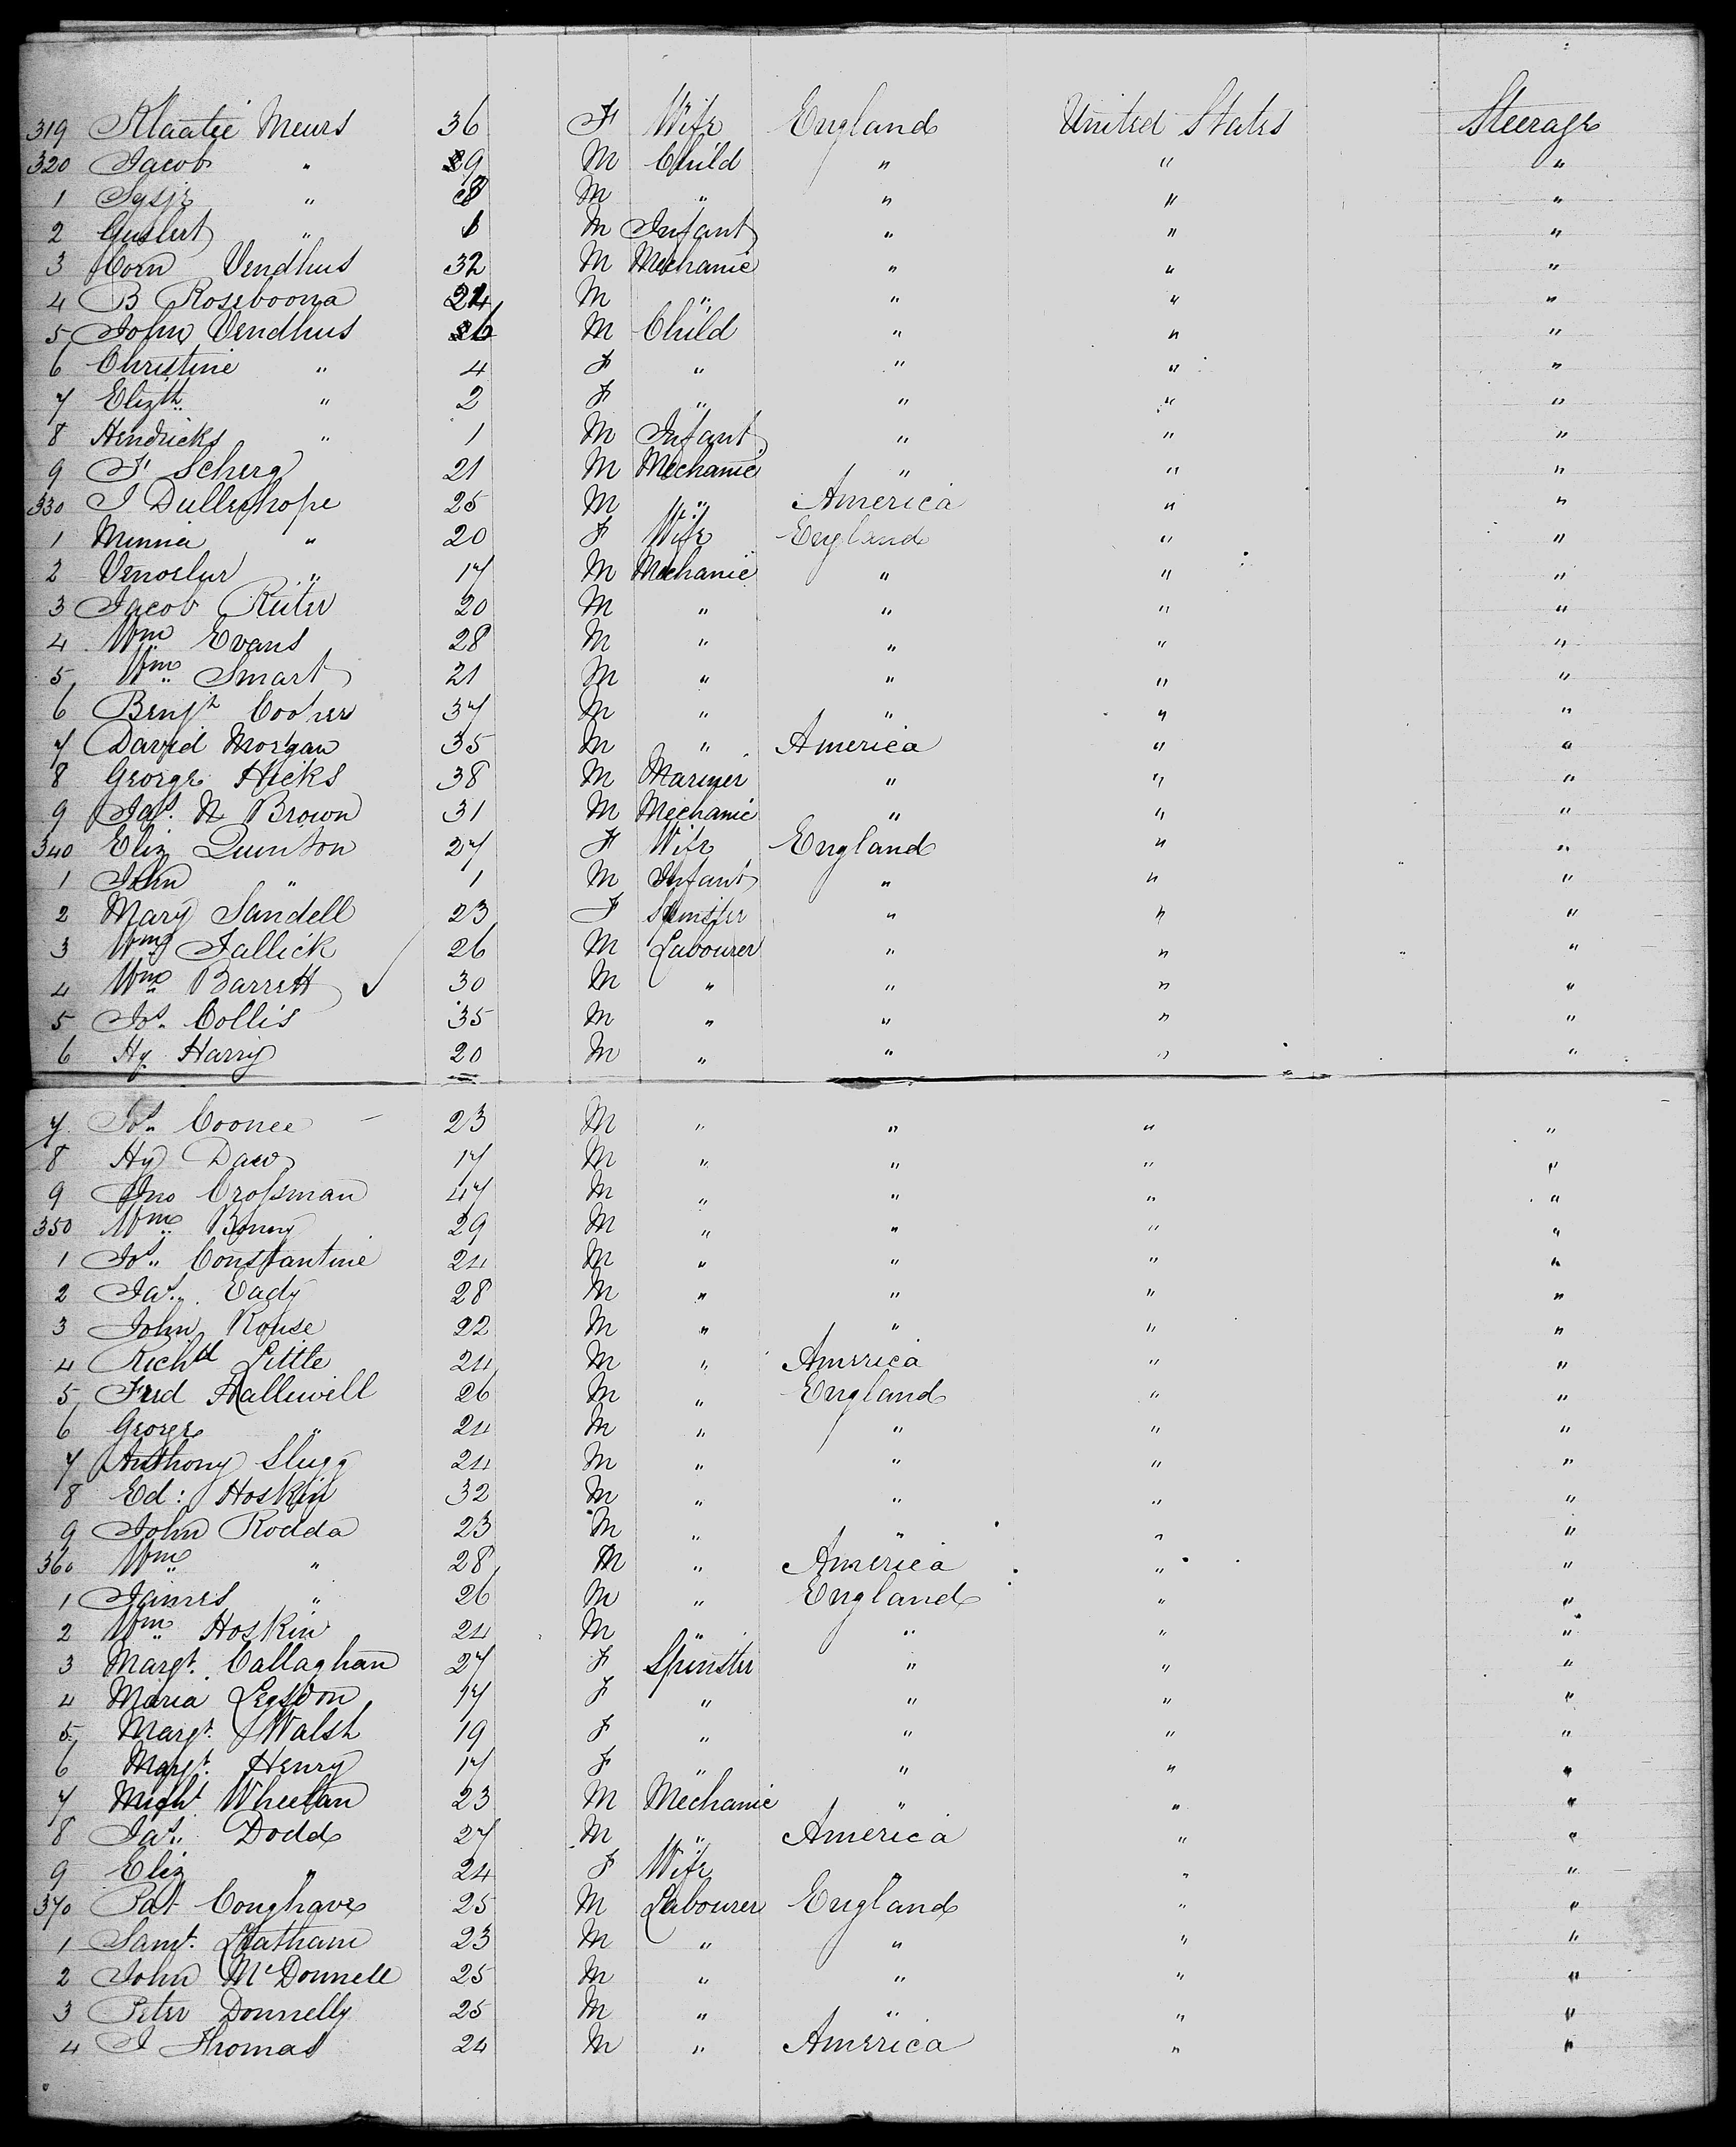 319 Klaatie Meurs 36 F Wife England United States Steerage
320 Jacob " 9 M Child " " "
1 Sysje " 8 M " " " "
2 " M Infant " " "
3 Corn Vendhus 32 M Mechanic " " "
4 B Roseboona 24 M " " " "
5 John Vendhus 6 M Child " " "
6 Christine " 4 F " " " "
7 Elizth " 2 F " " " "
8 Hendricks " 1 M Infant " " "
9 F Scherg 21 M Mechanic " " "
330 J Dulleshope 25 M " America " "
1 Minnie " 20 F Wife England " "
2 " 17 M Mechanic " " "
3 Jacob Ruter 20 M " " " "
4 Wm Evans 28 M " " " "
5 Wm Smart 21 M " " " "
6 Benjn Cooper 37 M " " " "
7 David Morgan 35 M " America " "
8 George Hicks 38 M Mariner " " "
9 Jas. N Brown 31 M Mechanic " " "
340 Eliz Quinton 27 F Wife England " "
1 John " 1 M Infant " " "
2 Mary Sandell 23 F Spinster " " "
3 Wm Jallick 26 M Labourer " " "
4 Wm Barrett 30 M " " " "
5 Jos. Collis 35 M " " " "
6 Hy Harry 20 M " " " "
7 Jos. Coonee 23 M " " " "
8 Hy Daw 17 M " " " "
9 Jno Crossman 47 M " " " "
350 Wm Bonny 29 M " " " "
1 Jos. Constantine 24 M " " " "
2 Jas. Eady 28 M " " " "
3 John Rouse 22 M " " " "
4 Richd Little 24 M " America " "
5 Fred Hallewell 26 M " England " "
6 George " 24 M " " " "
7 Anthony Slugg 24 M " " " "
8 Ed: Hoskin 32 M " " " "
9 John Rodda 23 M " " " "
360 Wm " 28 M " America " "
1 James " 26 M " England " "
2 Wm Hoskin 24 M " " " "
3 Margt. Callaghan 27 F Spinster " " "
4 Maria Legsdon 17 F " " " "
5 Margt. Walsh 19 F " " " "
6 Margt. Henry 17 F " " " "
7 Wheelan 23 M Mechanic " " "
8 Jas. Dodd 27 M " America " "
9 Eliz " 24 F Wife " " "
370 Pat Coughave 25 M Labourer England " "
1 Saml. Latham 23 M " " " "
2 John McDonnell 25 M " " " "
3 Peter Donnelly 25 M " " " "
4 J Thomas 24 M " America " "